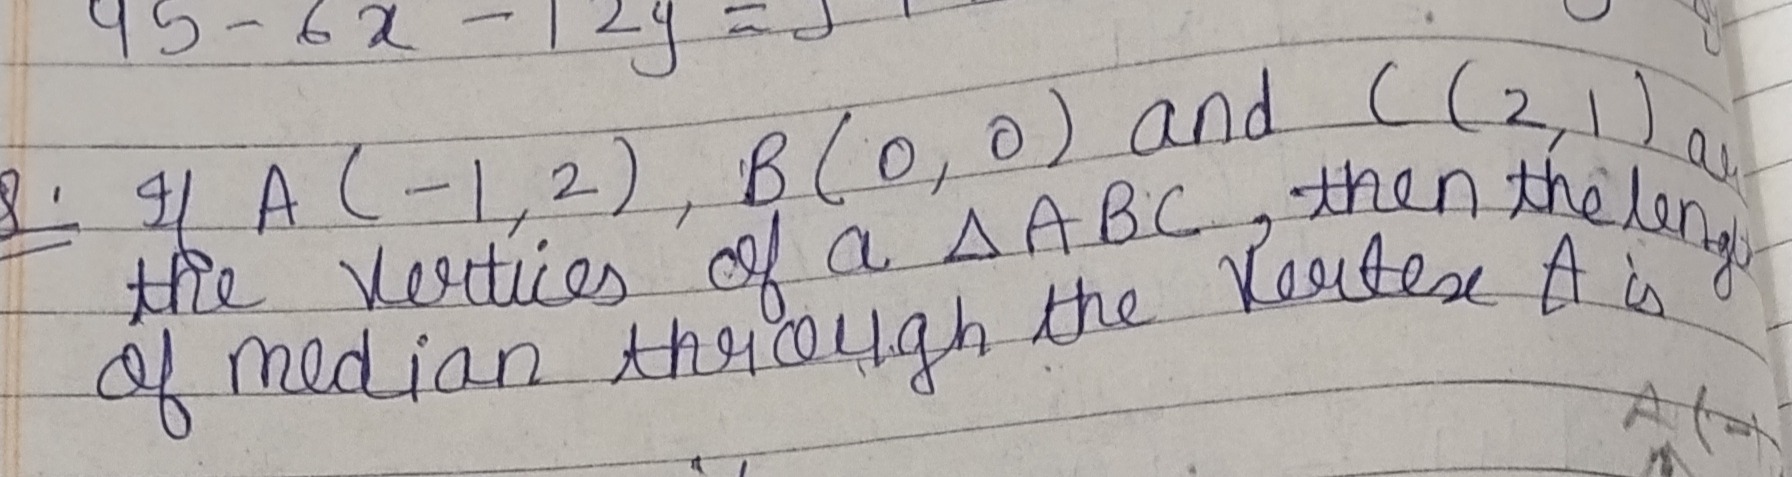 45 - 6x - 12y =
8. If A (-1, 2), B(0, 0) and C (2, 1) are
the vertices of a △ABC, then the length
of median through the vertex A is
A (-1